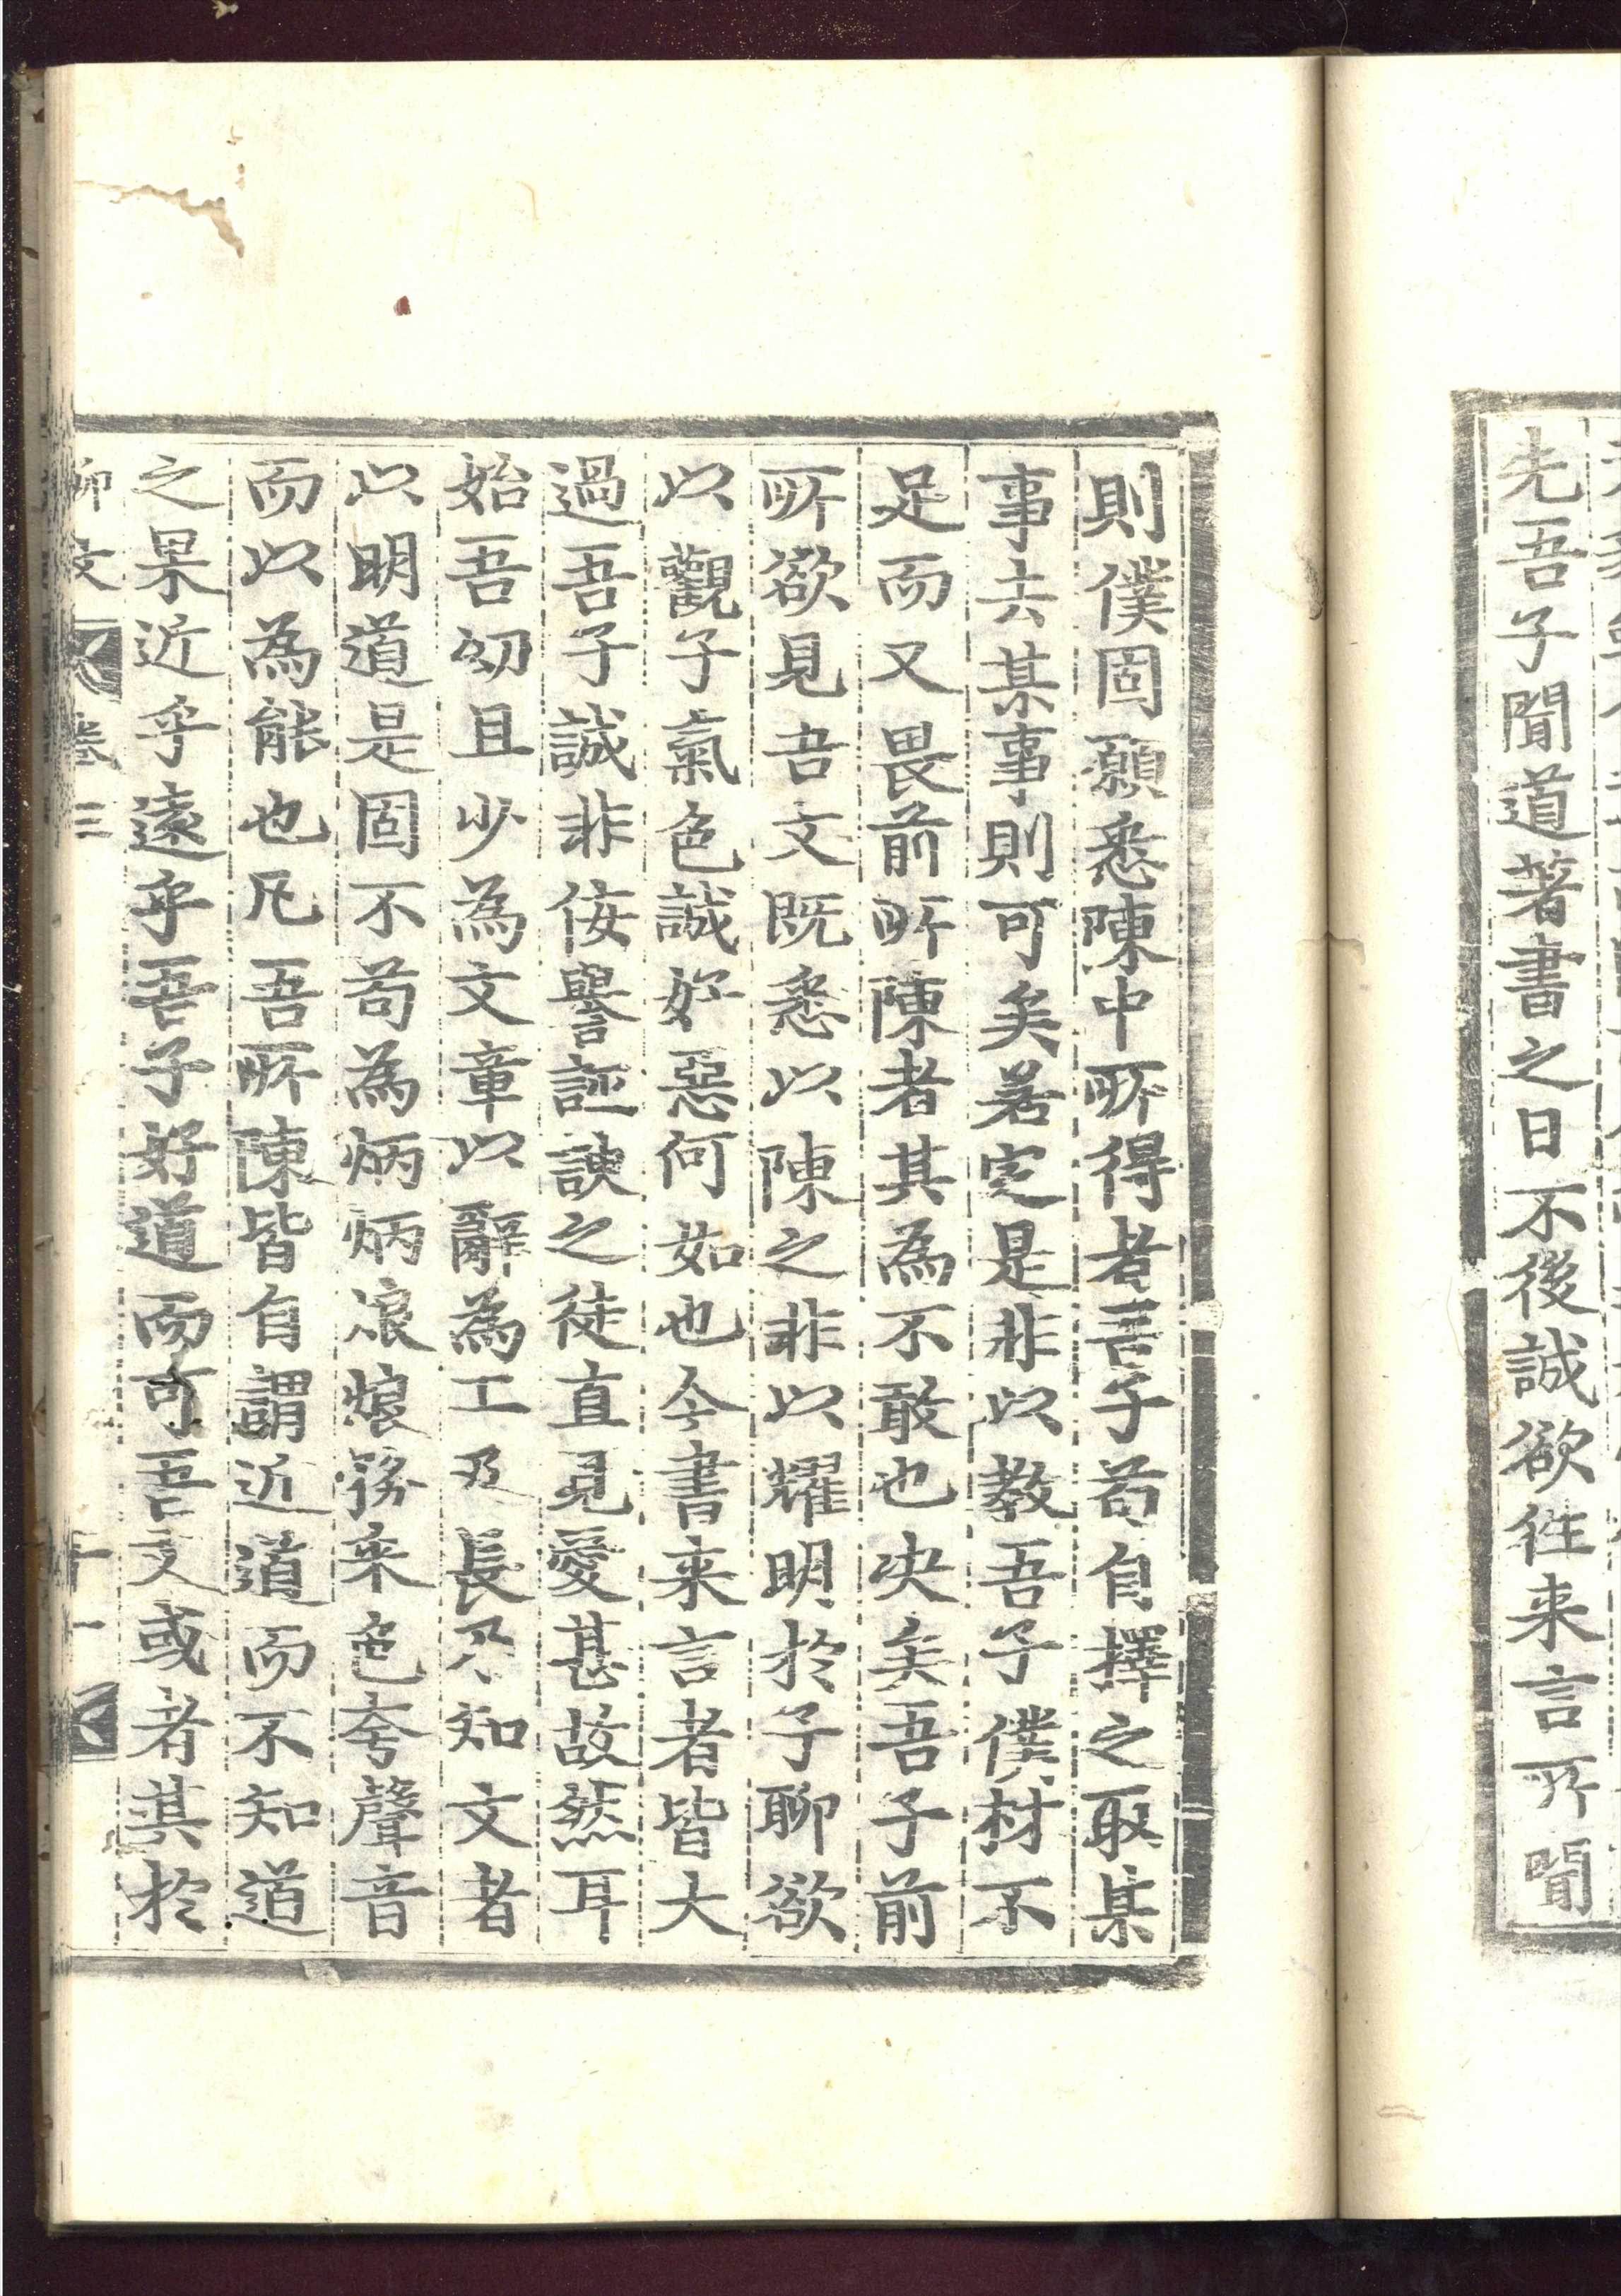 先吾子聞道著書之日不後誠欲往来言所聞
則僕固願悉陳中所得者吾子苟自擇之取某
事去某事則可矣若定是非以教吾子僕材不
足而又畏前所陳者其為不敢也决矣吾子前
所欲見吾文既悉以陳之非以耀明於子聊欲
以觀子氣色誠好惡何如也今書来言者皆大
過吾子誠非佞譽誣諛之徒直見愛甚故然耳
始吾幼且少為文章以辭為工及長乃知文者
以明道是固不苟為炳炳烺烺務采色夸聲音
而以為能也凡吾所陳皆自謂近道而不知道
之果近乎遠乎吾子好道而可吾文或者其於
柳文 卷三 十一